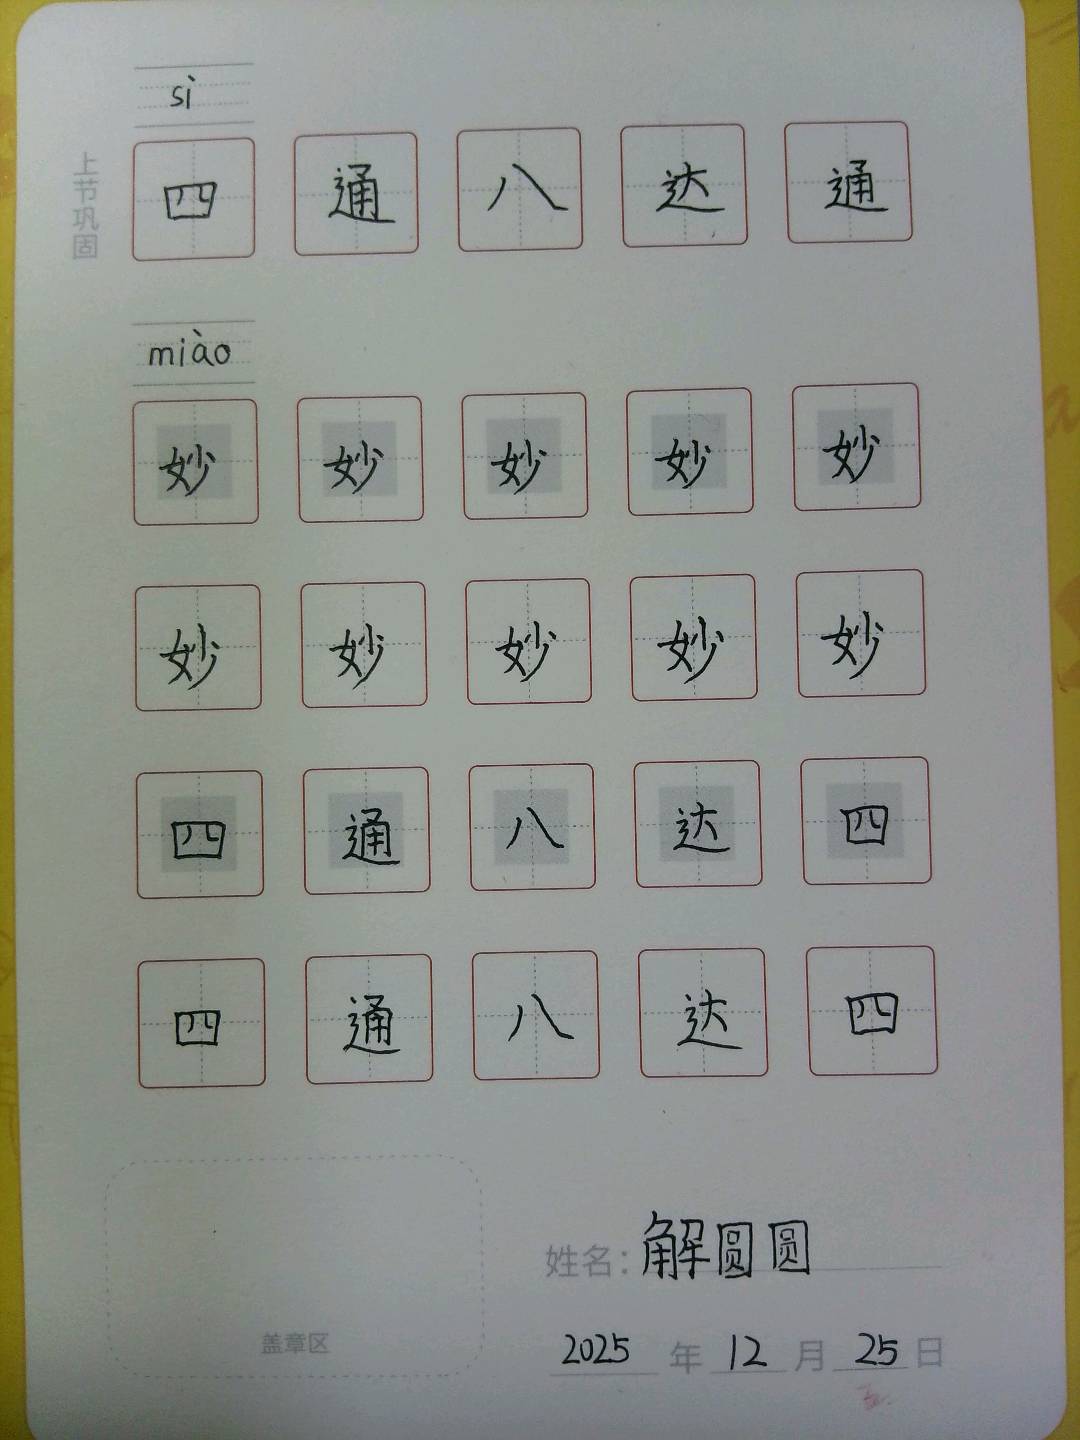 sì
上节巩固
四 通 八 达 通
miào
妙 妙 妙 妙 妙
妙 妙 妙 妙 妙
四 通 八 达 四
四 通 八 达 四
姓名：解圆圆
盖章区
2025 年 12 月 25 日